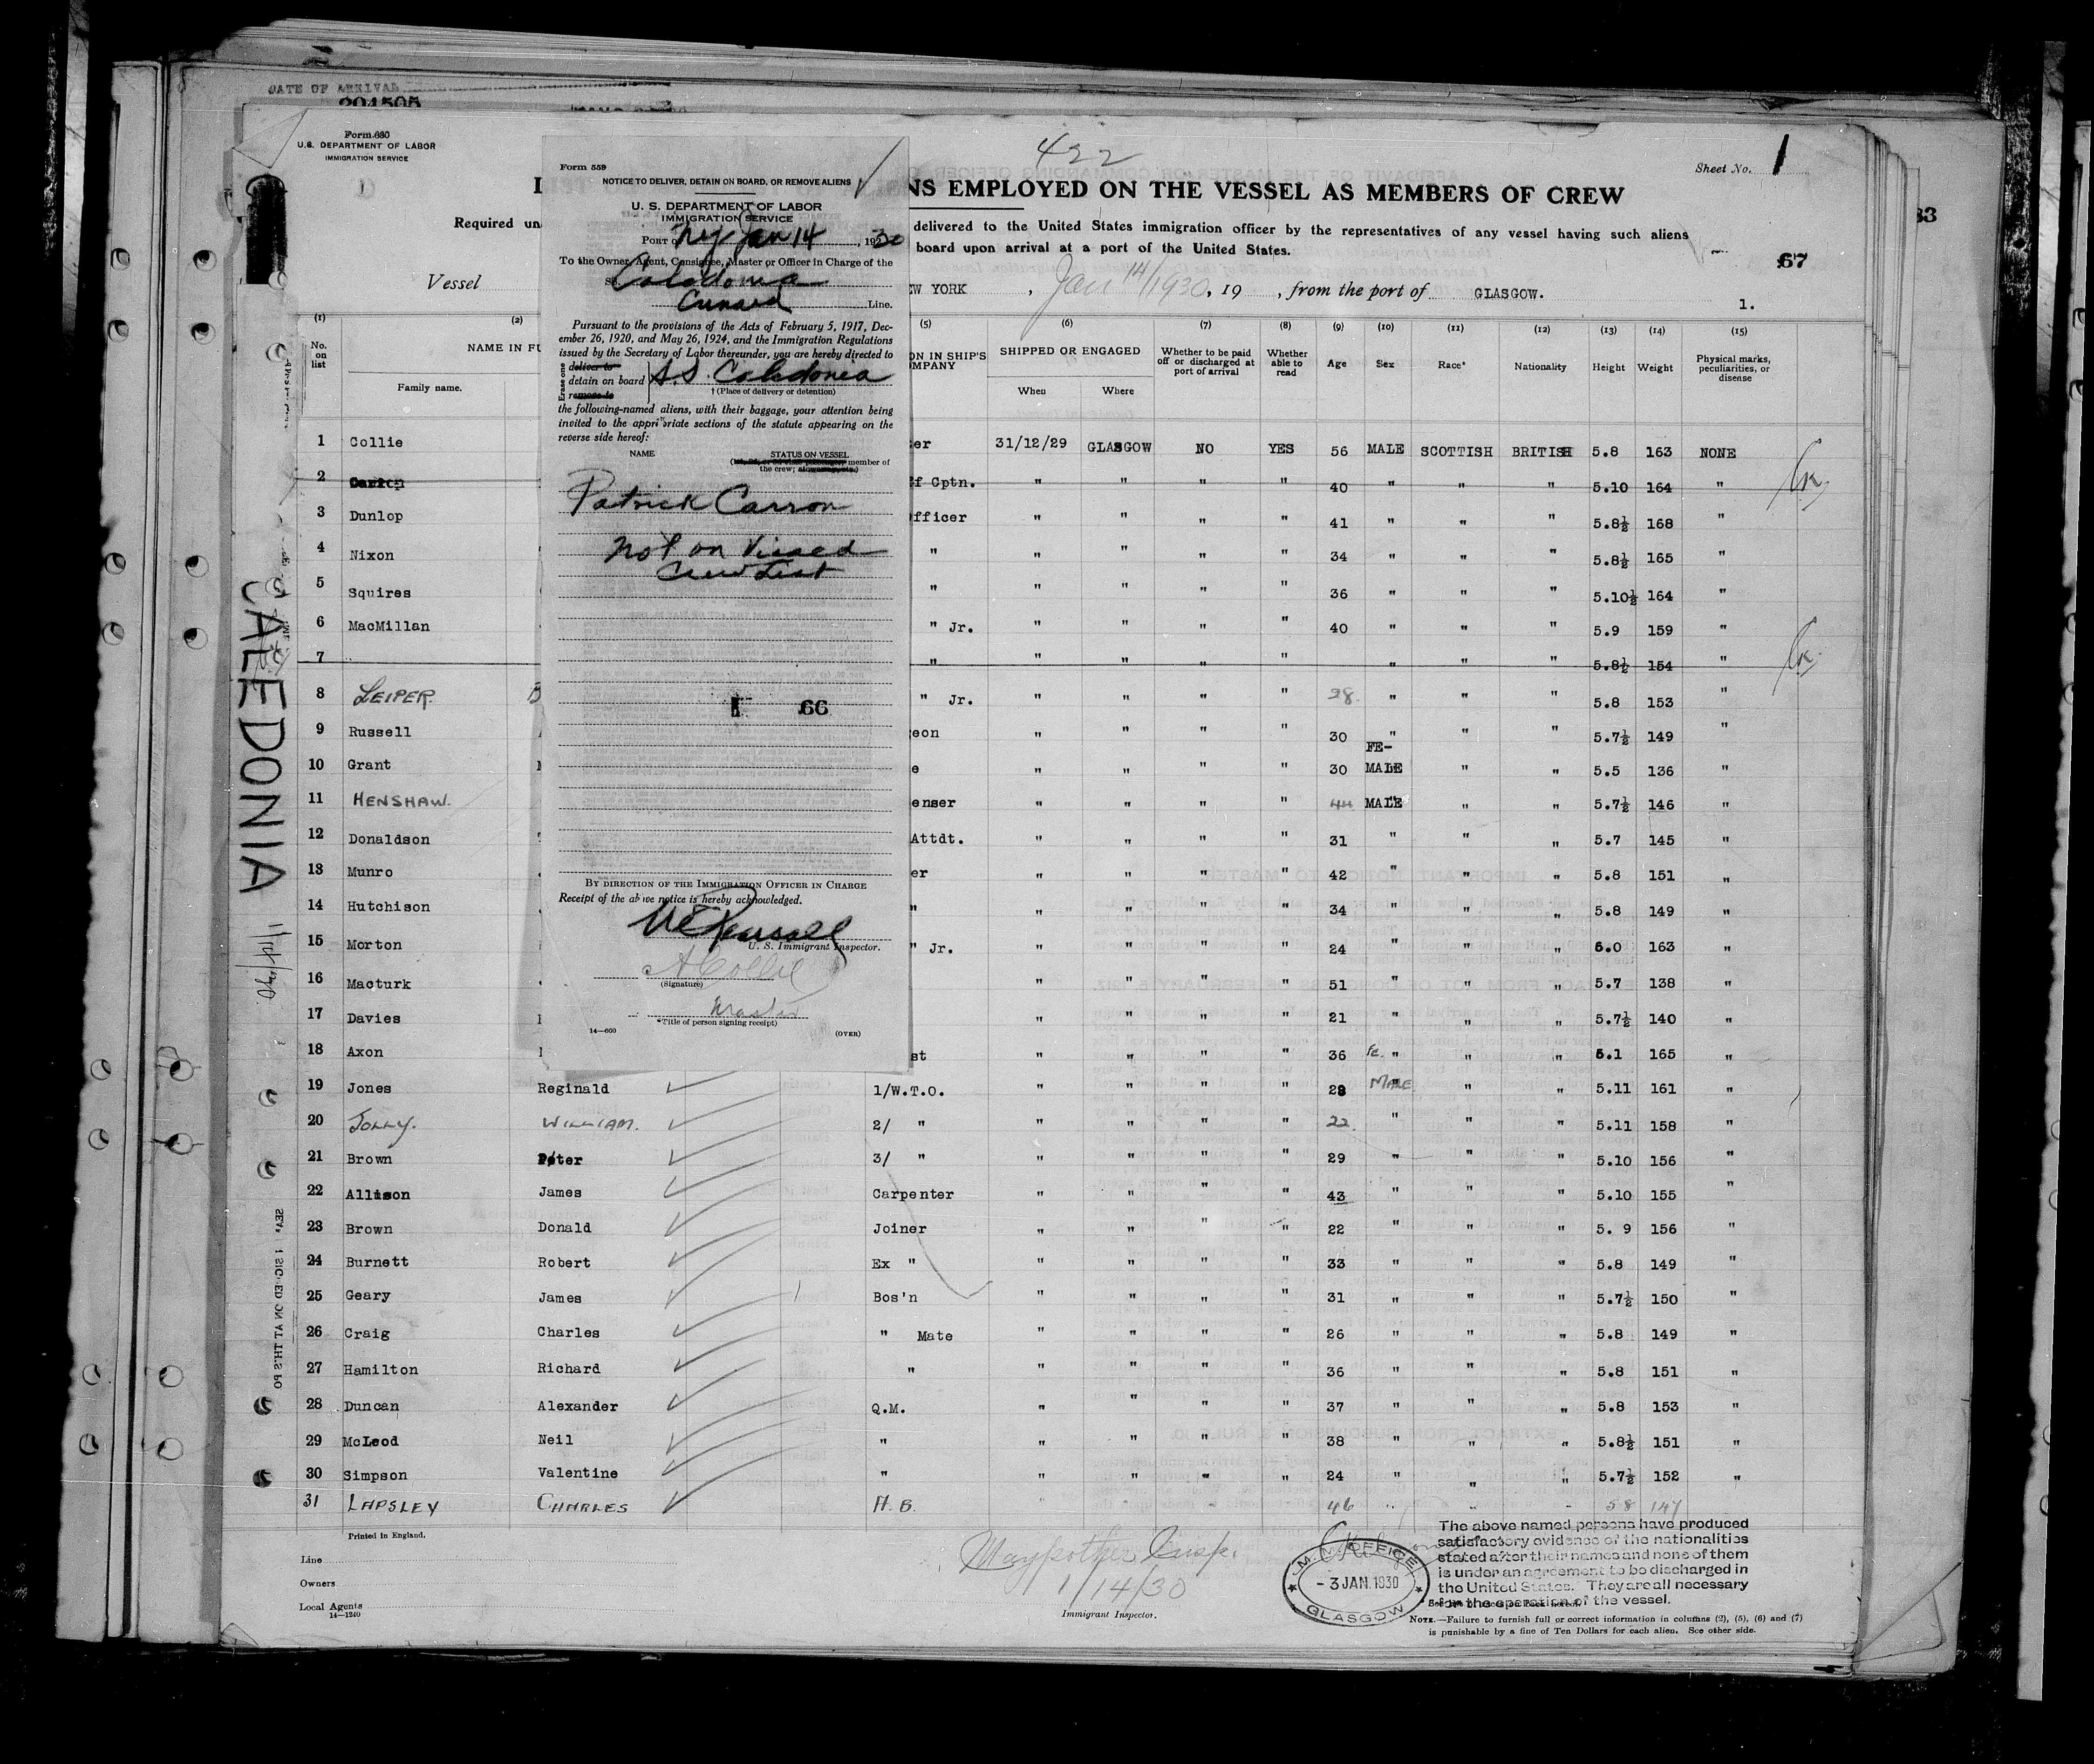 DATE OF ARRIVAL
204505
Form 680
U.S. DEPARTMENT OF LABOR
IMMIGRATION SERVICE
422
Sheet No. 1
NS EMPLOYED ON THE VESSEL AS MEMBERS OF CREW
83
Required un
delivered to the United States immigration officer by the representatives of any vessel having such aliens
board upon arrival at a port of the United States.
67
Vessel
EW YORK , Jan 14/1930, 19 , from the port of GLASGOW.
1.
Form 559
NOTICE TO DELIVER, DETAIN ON BOARD, OR REMOVE ALIENS
U. S. DEPARTMENT OF LABOR
IMMIGRATION SERVICE
PORT NY Jan 14, 1930
To the Owner, Agent, Consignee, Master or Officer in Charge of the
SS. Caledonia
Cunard Line.
Pursuant to the provisions of the Acts of February 5, 1917, Dec-
ember 26, 1920, and May 26, 1924, and the Immigration Regulations
issued by the Secretary of Labor thereunder, you are hereby directed to
Erase one
deliver to
detain on board S.S. Caledonia
remove to
† (Place of delivery or detention)
the following-named aliens, with their baggage, your attention being
invited to the appropriate sections of the statute appearing on the
reverse side hereof:
NAME STATUS ON VESSEL
member of
the crew;
Patrick Carron
not on Visaed
Crew List
66
BY DIRECTION OF THE IMMIGRATION OFFICER IN CHARGE
Receipt of the above notice is hereby acknowledged.
U. S. Immigrant Inspector.
A Collie
(Signature)
Master
*Title of person signing receipt)
14—600 (OVER)
(1) (2) (5) (6) (7) (8) (9) (10) (11) (12) (13) (14) (15)
No. on list
NAME IN FU
Family name.
ON IN SHIP'S
OMPANY
SHIPPED OR ENGAGED
When Where
Whether to be paid off or discharged at port of arrival
Whether able to read
Age Sex Race* Nationality Height Weight
Physical marks, peculiarities, or disease
1 Collie er 31/12/29 GLASGOW NO YES 56 MALE SCOTTISH BRITISH 5.8 163 NONE
2 f Cptn. " " " " 40 " " " 5.10 164 "
3 Dunlop fficer " " " " 41 " " " 5.8½ 168 "
4 Nixon " " " " " 34 " " " 5.8½ 165 "
5 Squires " " " " " 36 " " " 5.10½ 164 "
6 MacMillan " Jr. " " " " 40 " " " 5.9 159 "
7 " " " " " " " " 5.8½ 154 "
8 LEIPER B " Jr. " " " " 28 " " 5.8 153 "
9 Russell eon " " " " 30 " " " 5.7½ 149 "
10 Grant e " " " " 30 FE-MALE " " 5.5 136 "
11 HENSHAW. enser " " " " 44 MALE " " 5.7½ 146 "
12 Donaldson Attdt. " " " " 31 " " " 5.7 145 "
13 Munro er " " " " 42 " " " 5.8 151 "
14 Hutchison " " " " " 34 " " " 5.8 149 "
15 Morton " Jr. " " " " 24 " " " 6.0 163 "
16 Macturk " " " " 51 " " " 5.7 138 "
17 Davies " " " " 21 " " " 5.7½ 140 "
18 Axon st " " " " 36 Fe. " " " 5.1 165 "
19 Jones Reginald 1/W.T.O. " " " " 28 MALE " " 5.11 161 "
20 JOLLY. WILLIAM. 2/ " " " " " 22. " " " 5.11 158 "
21 Brown Peter 3/ " " " " " 29 " " " 5.10 156 "
22 Allison James Carpenter " " " " 43 " " " 5.10 155 "
23 Brown Donald Joiner " " " " 22 " " " 5. 9 156 "
24 Burnett Robert Ex " " " " " 33 " " " 5.8 149 "
25 Geary James Bos'n " " " " 31 " " " 5.7½ 150 "
26 Craig Charles " Mate " " " " 26 " " " 5.8 149 "
27 Hamilton Richard " " " " " 36 " " " 5.8 151 "
28 Duncan Alexander Q.M. " " " " 37 " " " 5.8 153 "
29 McLeod Neil " " " " " 38 " " " 5.8½ 151 "
30 Simpson Valentine " " " " " 24 " " " 5.7½ 152 "
31 LAPSLEY CHARLES A. B. 46 " " " 5 8 147
CALEDONIA 1/14/30
Printed in England.
Line
Owners
Local Agents
14—1240
1/14/30
Immigrant Inspector.
M. M. OFFICE
- 3 JAN. 1930
GLASGOW
The above named persons have produced
satisfactory evidence of the nationalities
stated after their names and none of them
is under an agreement to be discharged in
the United States. They are all necessary
for the operation of the vessel.
NOTE.—Failure to furnish full or correct information in columns (2), (5), (6) and (7)
is punishable by a fine of Ten Dollars for each alien. See other side.